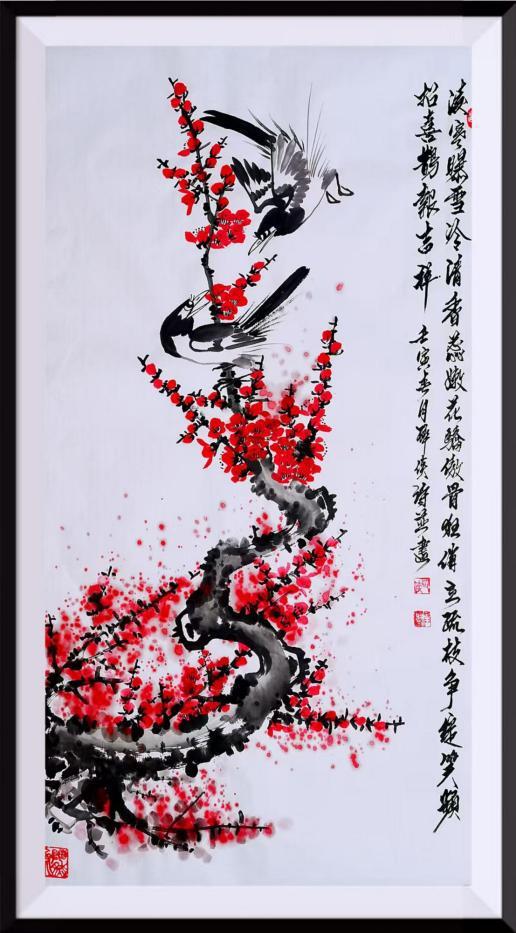 淡寒曝雪冷清香蕊嫩花骄傲骨狂俏立疏枝争绽笑频
招喜鹊报吉祥
壬寅春月 画